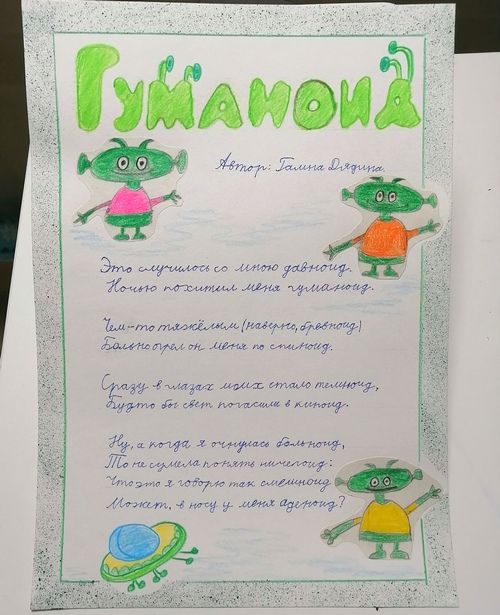 Гуманоид
Автор: Галина Дядина.
Это случилось со мною давноид.
Ночью похитил меня гуманоид.
Чем-то тяжёлым (наверно, бревноид)
Больно огрел он меня по спиноид.
Сразу в глазах моих стало темноид,
Будто бы свет погасили в киноид.
Ну, а когда я очнулась больноид,
То не сумела понять ничегоид:
Что это я говорю так смешноид
Может, в носу у меня аденоид?